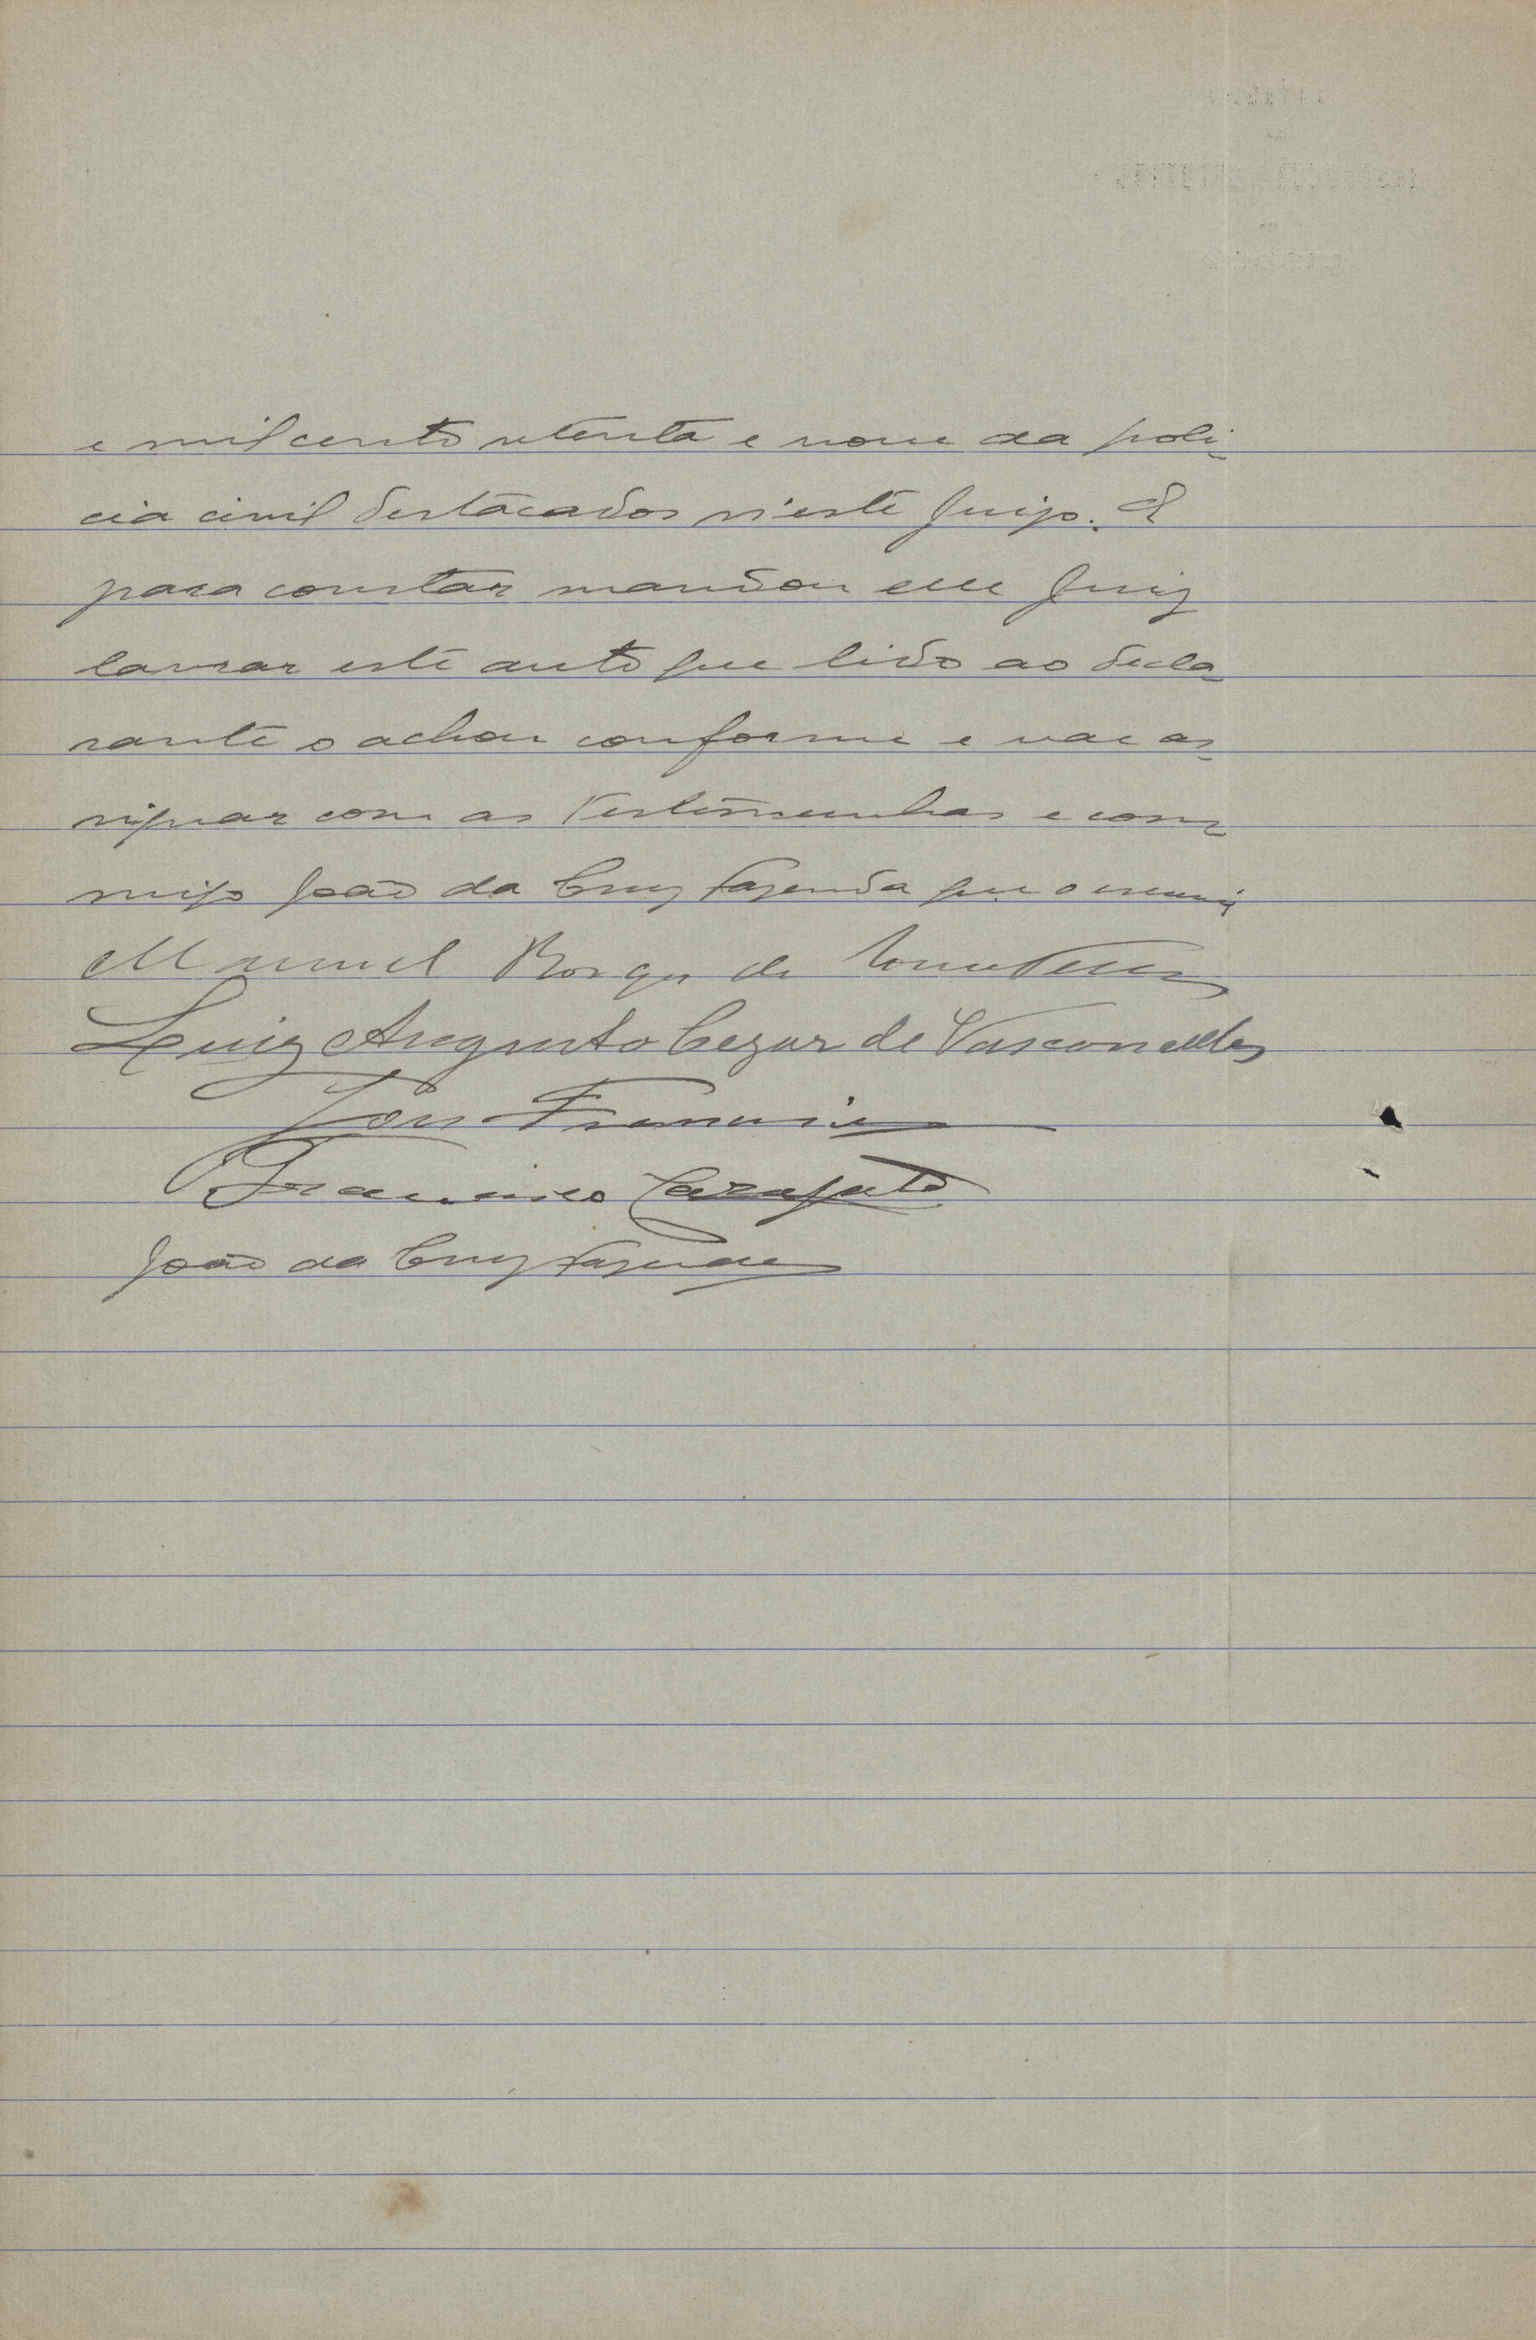 e mil cento setenta e nove da poli-
cia civil destacados n'este Juizo. E
para constar mandou elle Juiz
lavrar este auto que lido ao decla-
rante o achou conforme e vae as-
signar com as testemunhas e com-
migo João da Cruz Fazenda que o escrevi
Manuel Borges de
Luiz Augusto Cezar de Vasconcellos
José Francisco
Francisco Carapeto
João da Cruz Fazenda